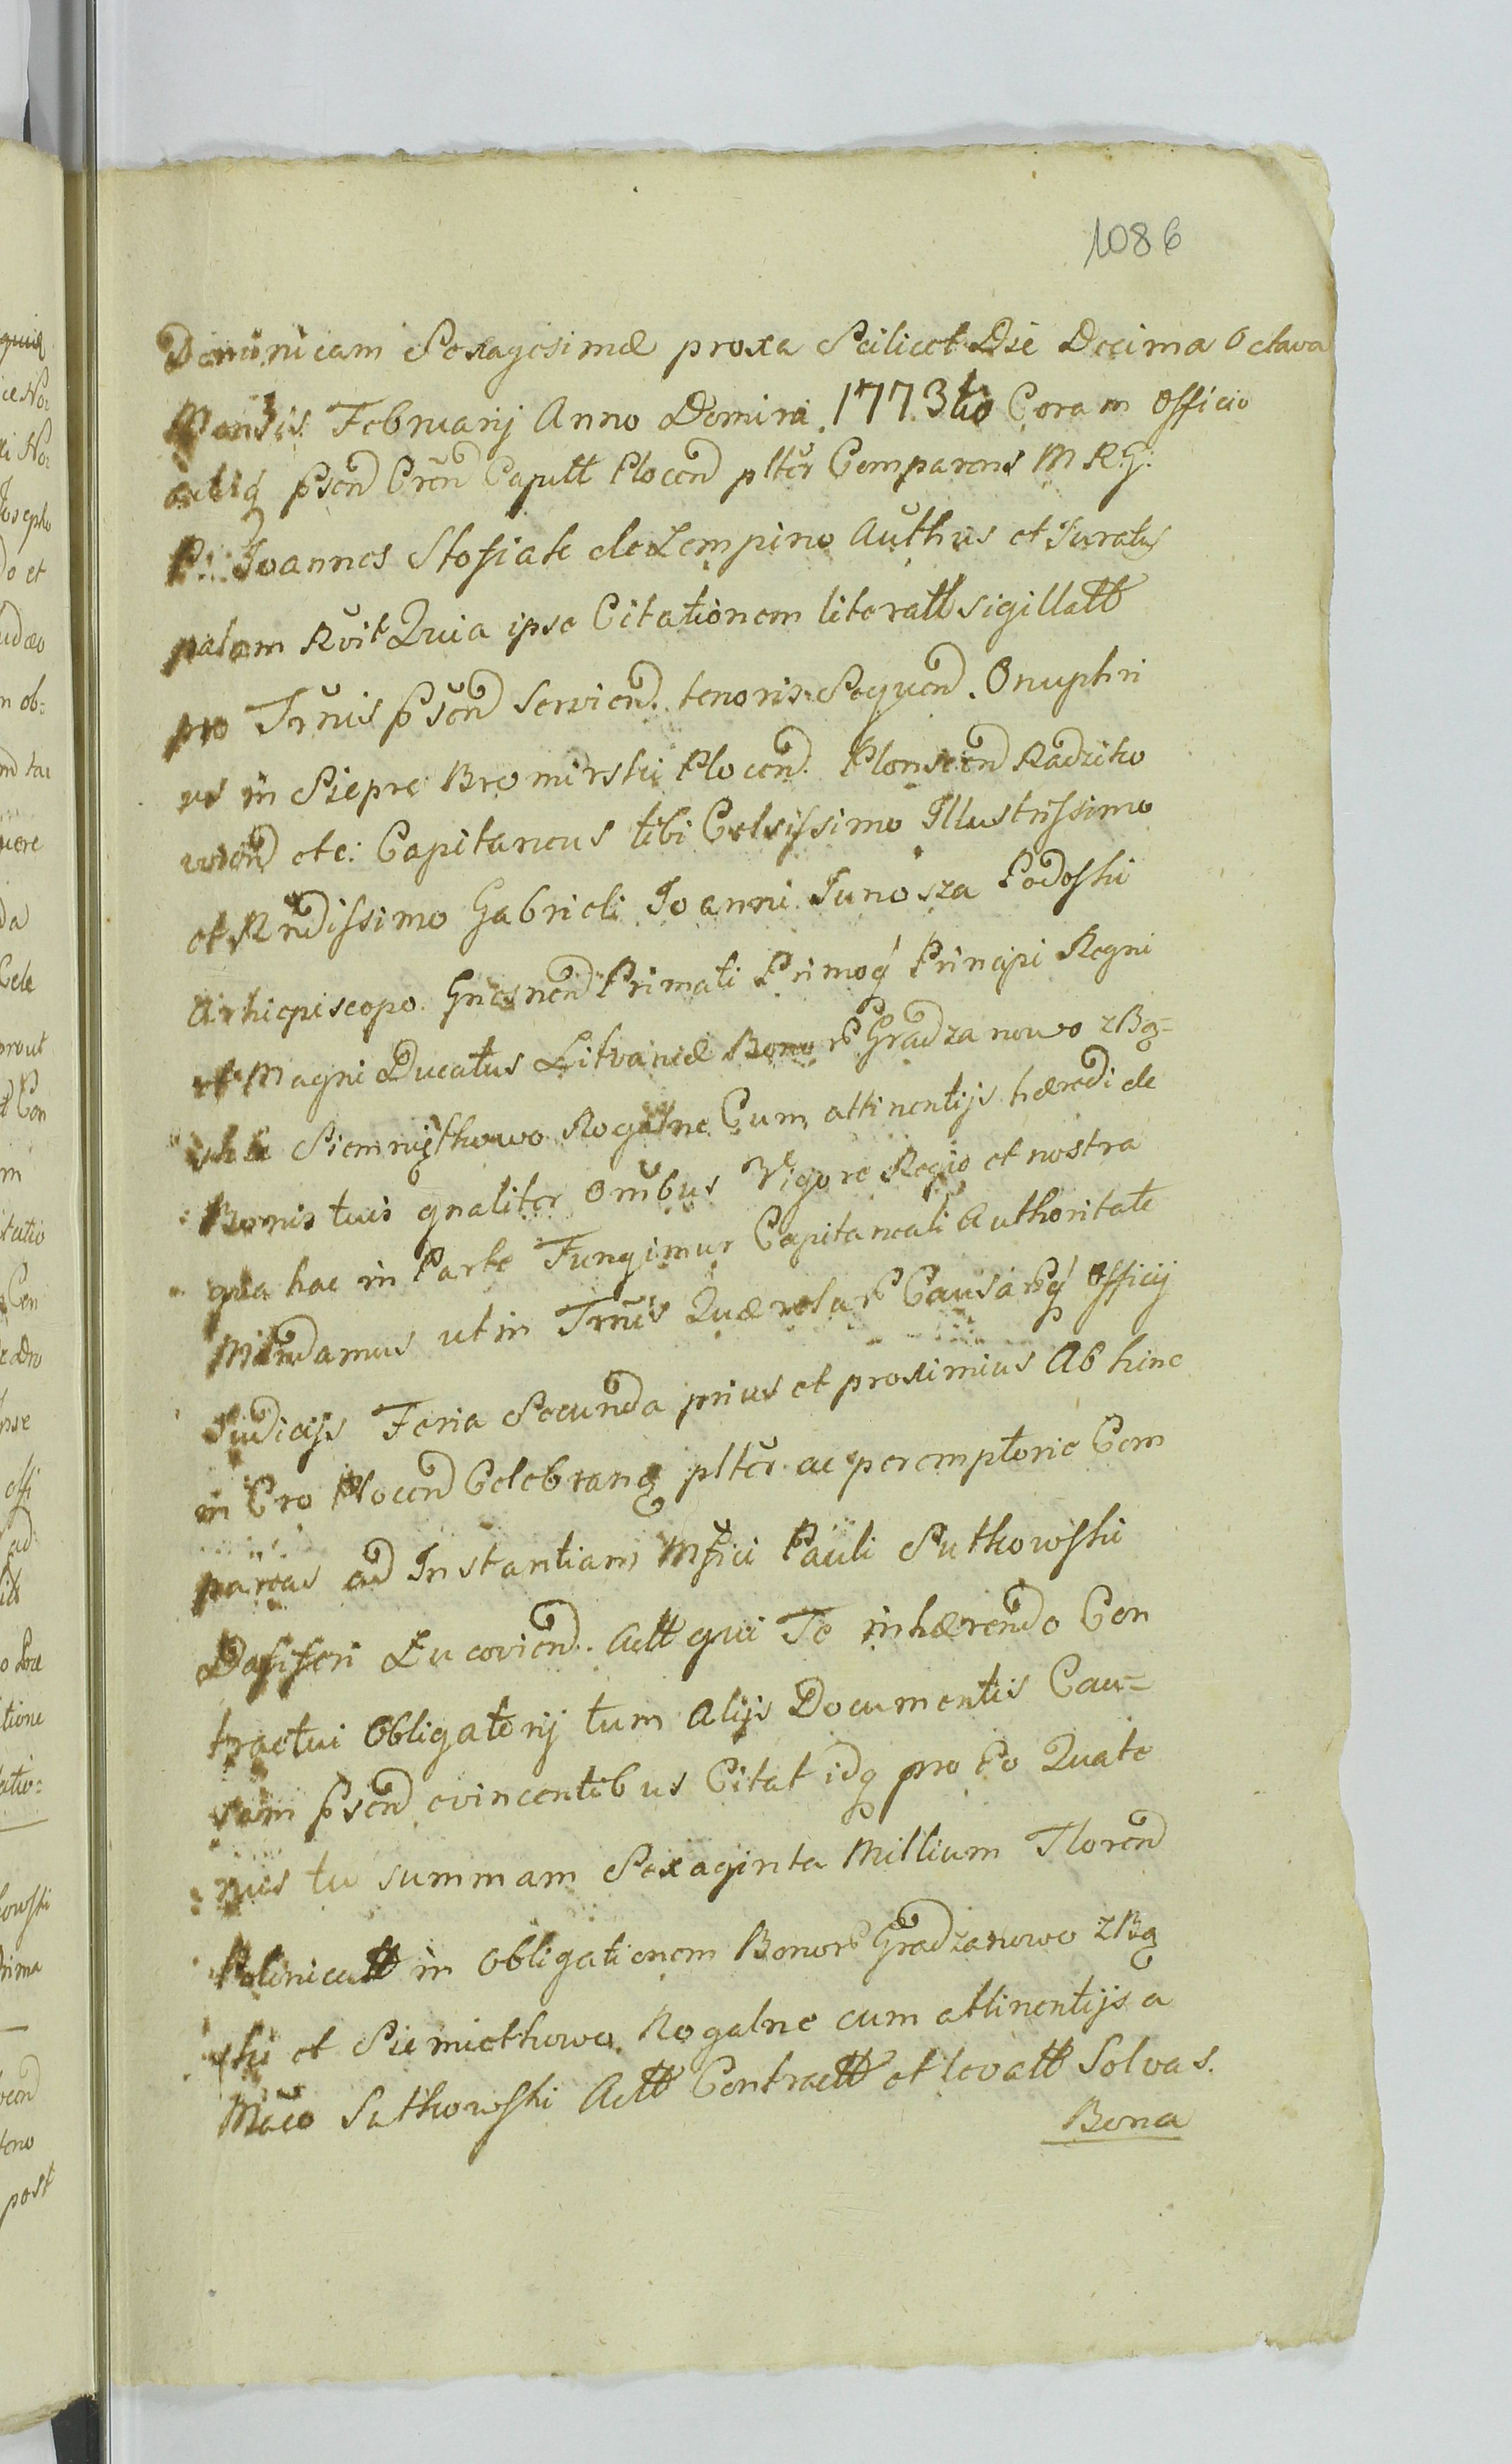 1086
Dominicam Sexagesimæ proxa Scilicet Die Decima Octava
Mensis Februarij Anno Domini 1773tio Coram Officio
actisq psend Cren Capitt Plocend plter Comparens M R G:
P: Joannes Stosiak de Lempino Authus et Juratus
palam Rvit Quia ipse Citationem literatt sigillatt
pro Trnis psend Serviend. tenoris Sequend. Onuphri
us in Siepre Bromirski Plocend. Plonscend Radziko
wiend etc: Capitaneus tibi Celsissimo Illustrissimo
et Rndissimo Gabrieli Joanni Junosza Podoski
Arhiepiscopo Gnesnend Primati Primoq Principi Regni
et Magni Ducatus Litvaniæ Bonor Gradzanowo zBg=
ski Siemnigtkowo Rogalne Cum attinentijs hæredi de
Bonis tuis gnaliter Omibus Vigore Regio et nostra
qua hac in Parte Fungimur Capitaneali Authoritate
Mandamus ut in Trnis Quærelar Causarq Officij
Judicijs Feria Secunda prius et proximius Ab hinc
in Cro Plocend Celebrang plter ac peremptorie Com
pareas ad Instantiam Mfici Pauli Sutkowski
Dapiferi Lucoviend. Actt qui Te inhærendo Con
tractui Obligatorij tum Alijs Documentis Cau=
sam psend evincentibus Citat idq pro Eo Quate
nus tu summam Sexaginta Millium Florend
Polinicatt in Obligationem Bonor Gradzanowo zBg
ski et Siemiotkowo Rogalne cum attinentijs a
Maco Sutkowski Actt Contractt et levatt Solvas.
Bona